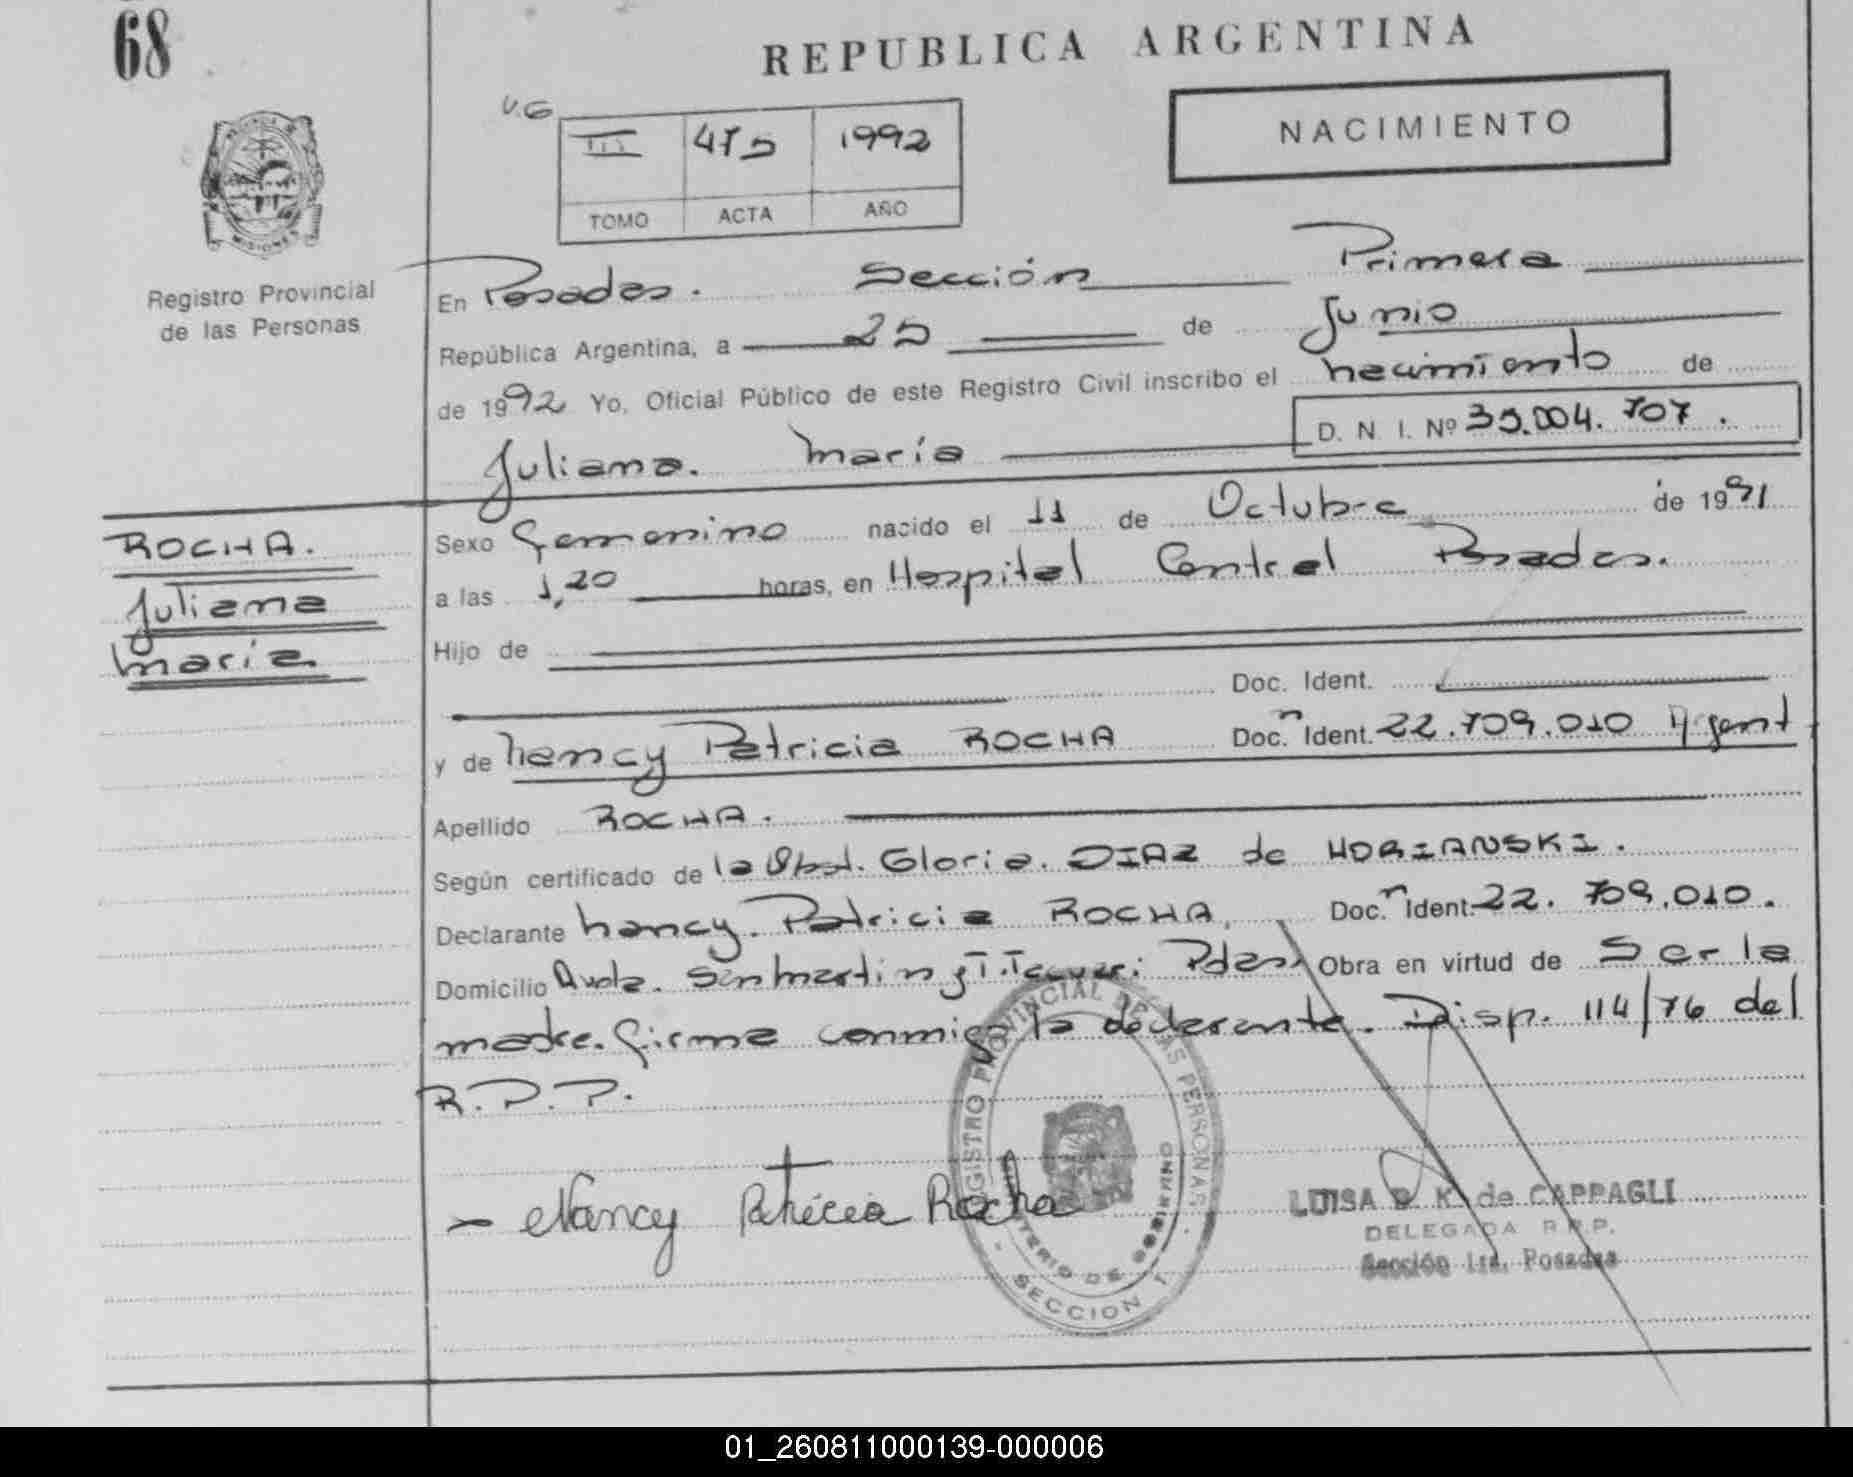 68
REPUBLICA ARGENTINA
NACIMIENTO
V.G
III 475 1992
TOMO ACTA AÑO
MISIONES
Registro Provincial
de las Personas
En Posadas. Sección Primera
República Argentina, a 25 de Junio
de 1992 Yo, Oficial Público de este Registro Civil inscribo el nacimiento de
D. N. I. Nº 35.004.707.
Juliana. María
ROCHA.
Juliana
María
Sexo Femenino nacido el 11 de Octubre de 1991
a las 1,20 horas, en Hospital Central Posadas.
Hijo de
Doc. Ident.
y de Nancy Patricia ROCHA Doc. n Ident. 22.709.010 Argent
Apellido ROCHA.
Según certificado de la Obst. Gloria. DIAZ de HORIANSKI.
Declarante Nancy. Patricia ROCHA, Doc. n Ident. 22.709.010.
Domicilio Avda. San Martin y T. Pdas. Obra en virtud de Ser la
madre. Firma conmigo la declarante. Disp. 114/76 del
R.P.P.
Nancy Patricia Rocha
REGISTRO PROVINCIAL DE LAS PERSONAS
MINISTERIO DE GOBIERNO
SECCION 1
LUISA B. K. de CAPPAGLI
DELEGADA R.P.P.
Sección 1ra. Posadas
01_260811000139-000006